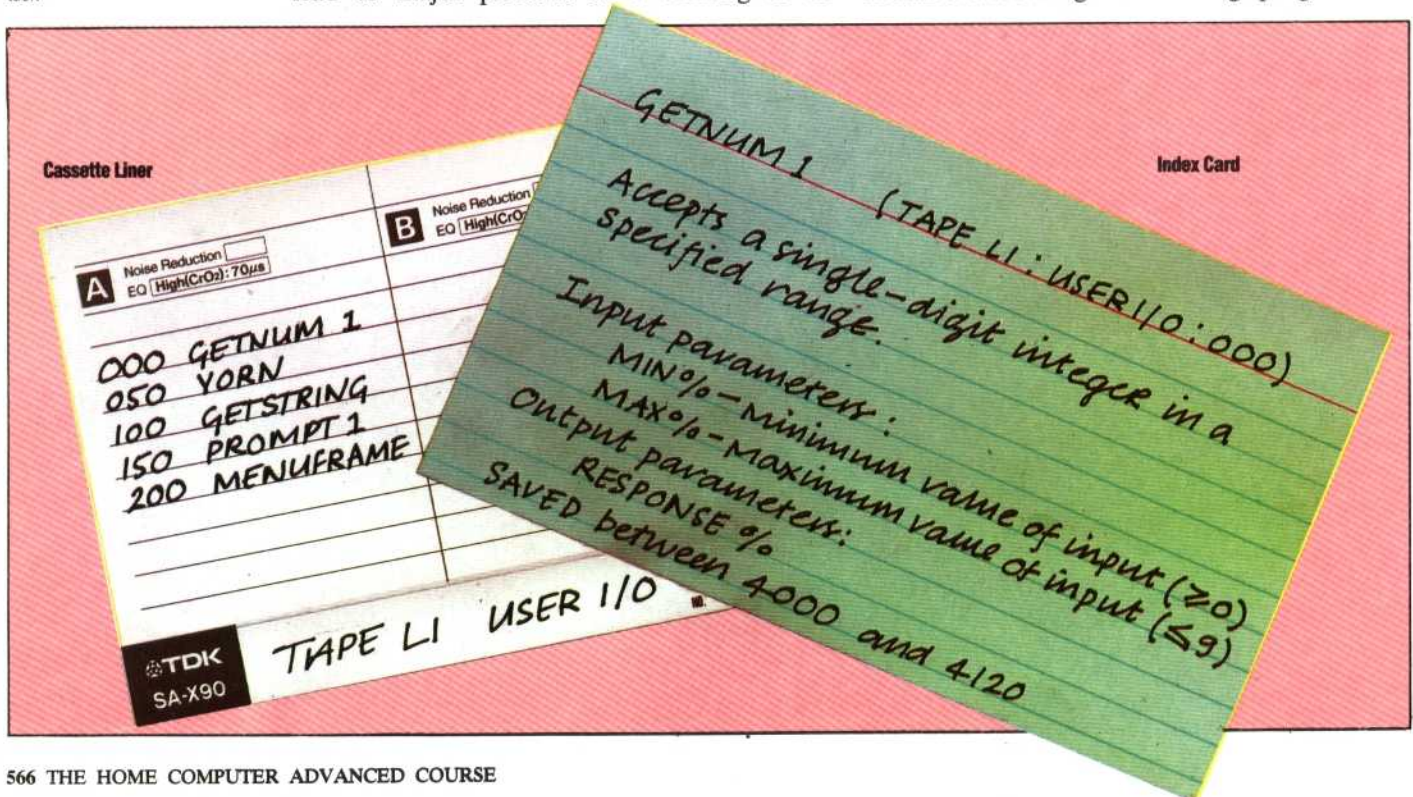 Cassette Liner
A
Noise Reduction
EQ High(CrO2): 70µs
B
Noise Reduction
EQ High(CrO
000 GETNUM 1
050 YORN
100 GETSTRING
150 PROMPT 1
200 MENUFRAME
TDK
SA-X90
TAPE L1 USER I/O
NO.
Index Card
GETNUM 1 (TAPE L1 : USER I/O : 000)
Accepts a single-digit integer in a
specified range.
Input parameters :
MIN% - Minimum value of input (≥0)
MAX% - Maximum value of input (≤9)
Output parameters:
RESPONSE %
SAVED between 4000 and 4120
566 THE HOME COMPUTER ADVANCED COURSE